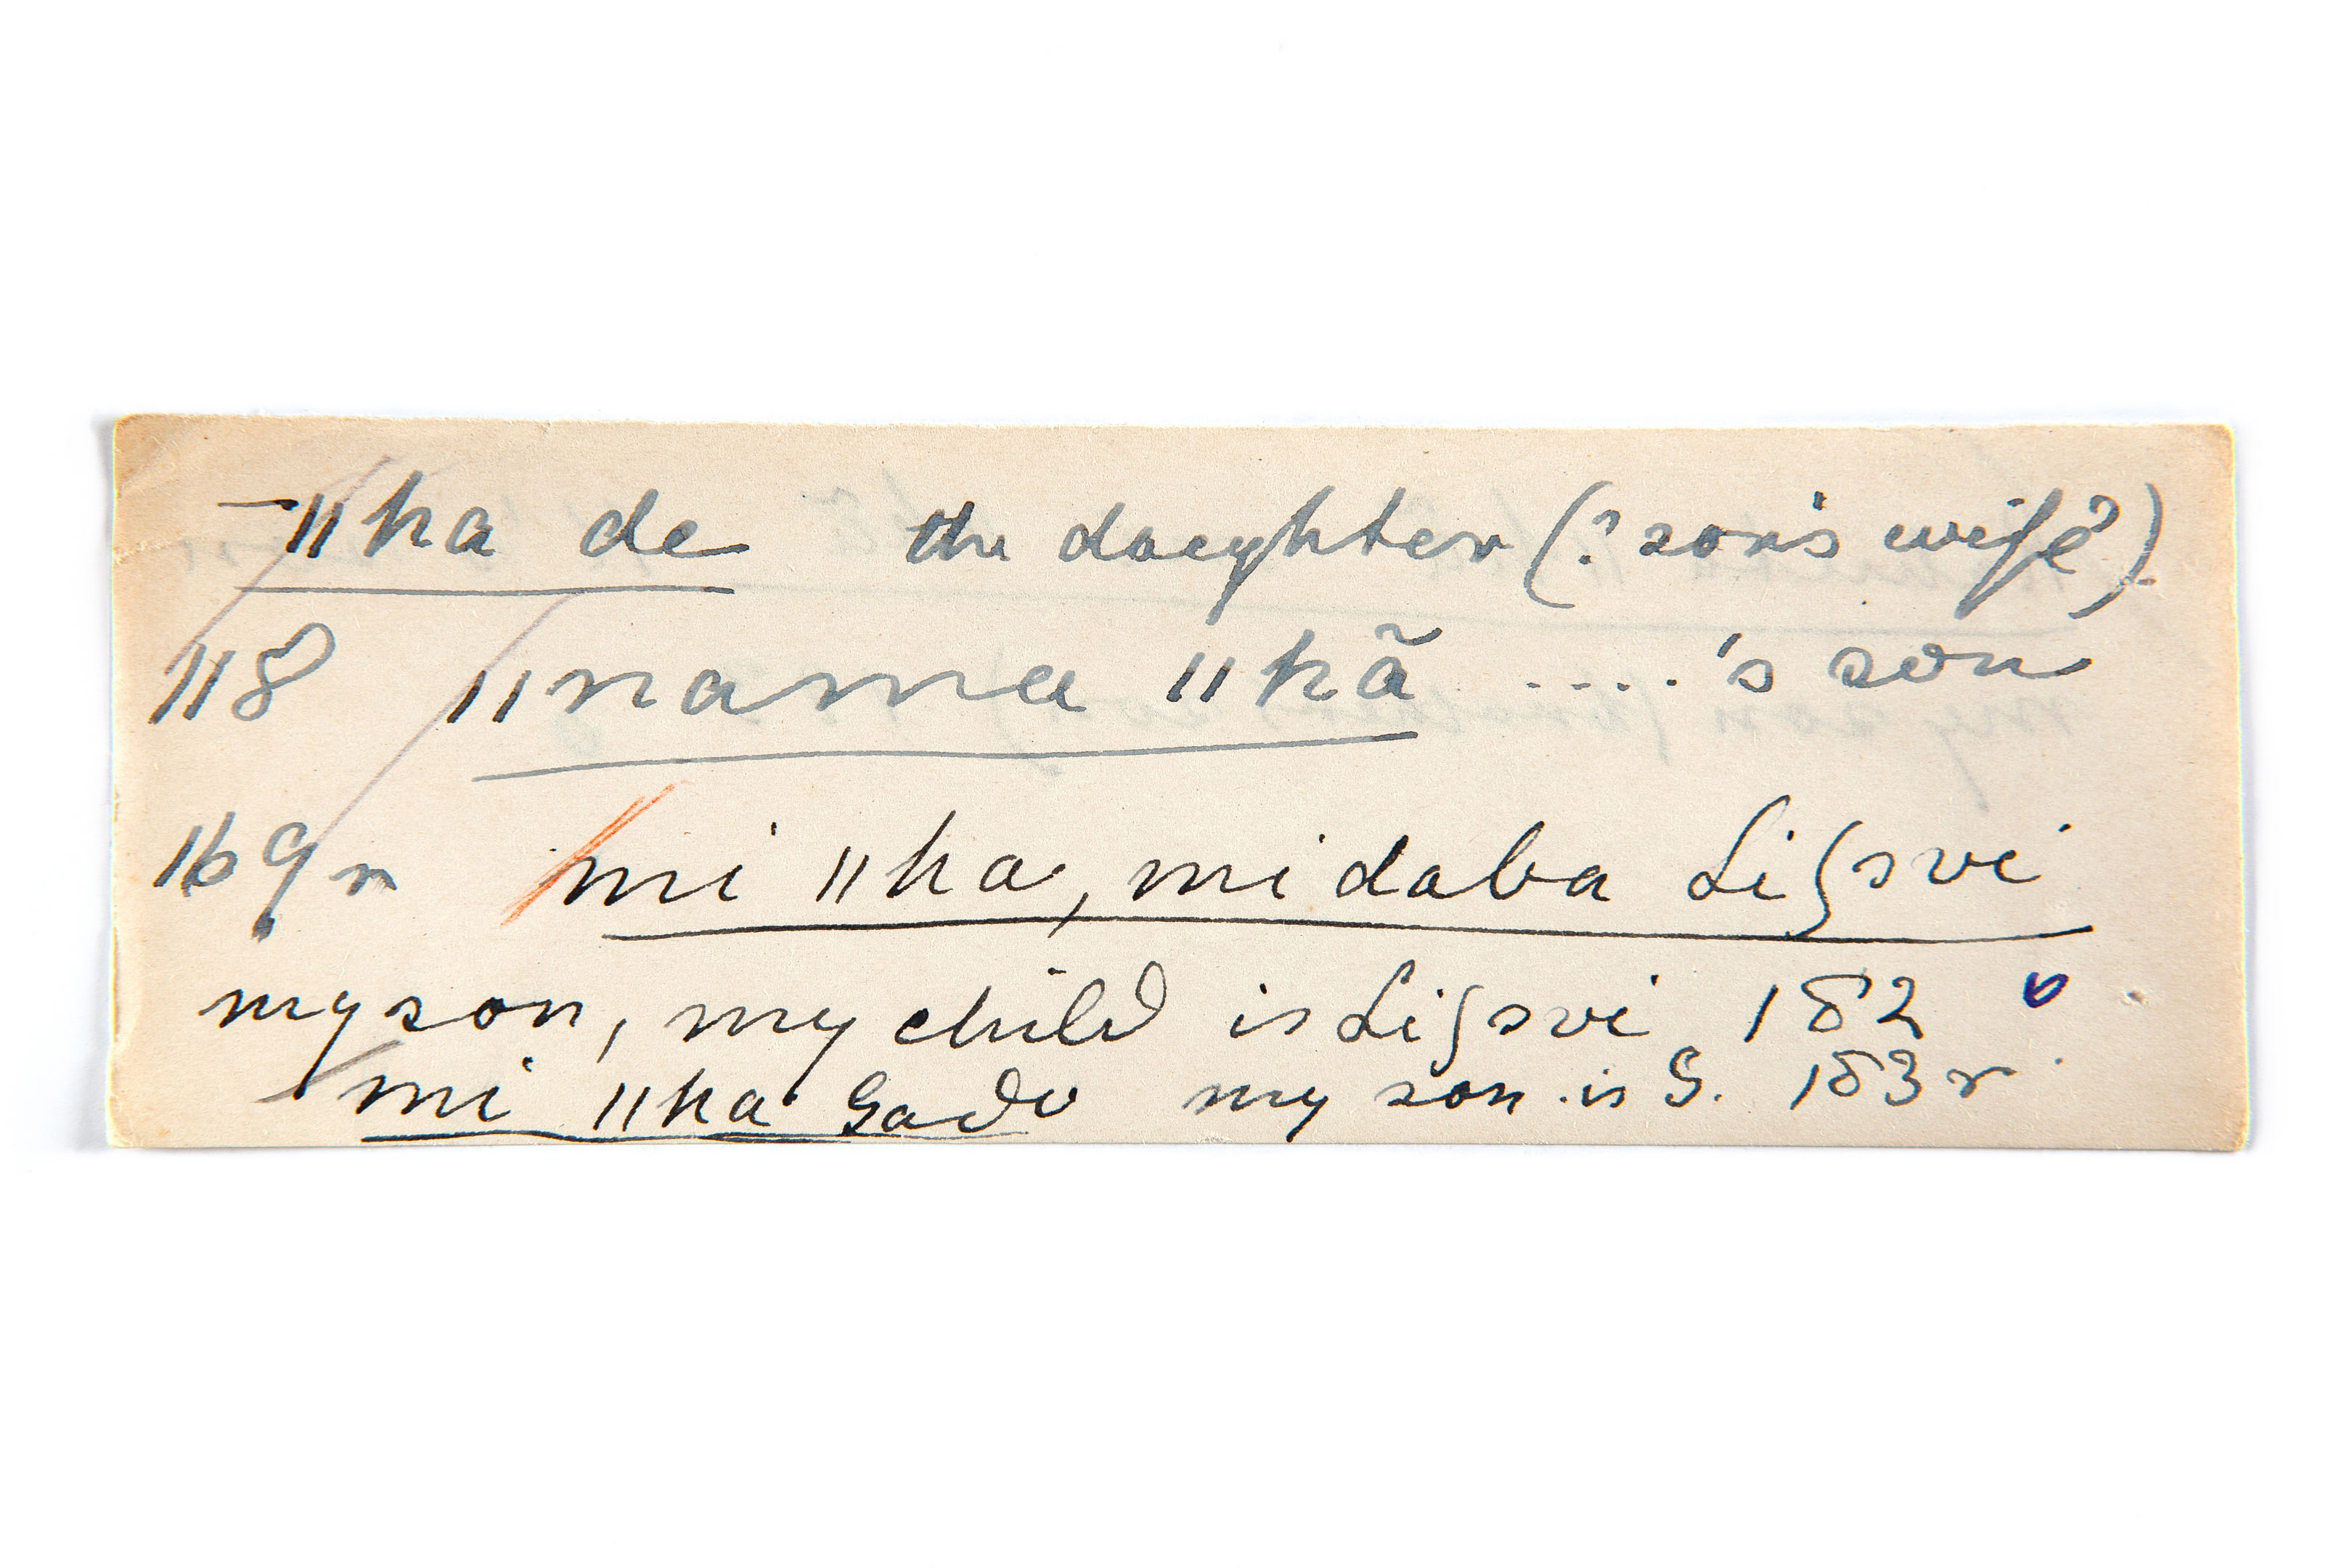 –ǁha de the daughter (? son's wife?)
118 ǁnama ǁhã ....'s son
169r mi ǁha, mi daba Liʃsvi
my son, my child is Liʃsvi 182 v
mi ǁha Gadv my son is G. 183 r